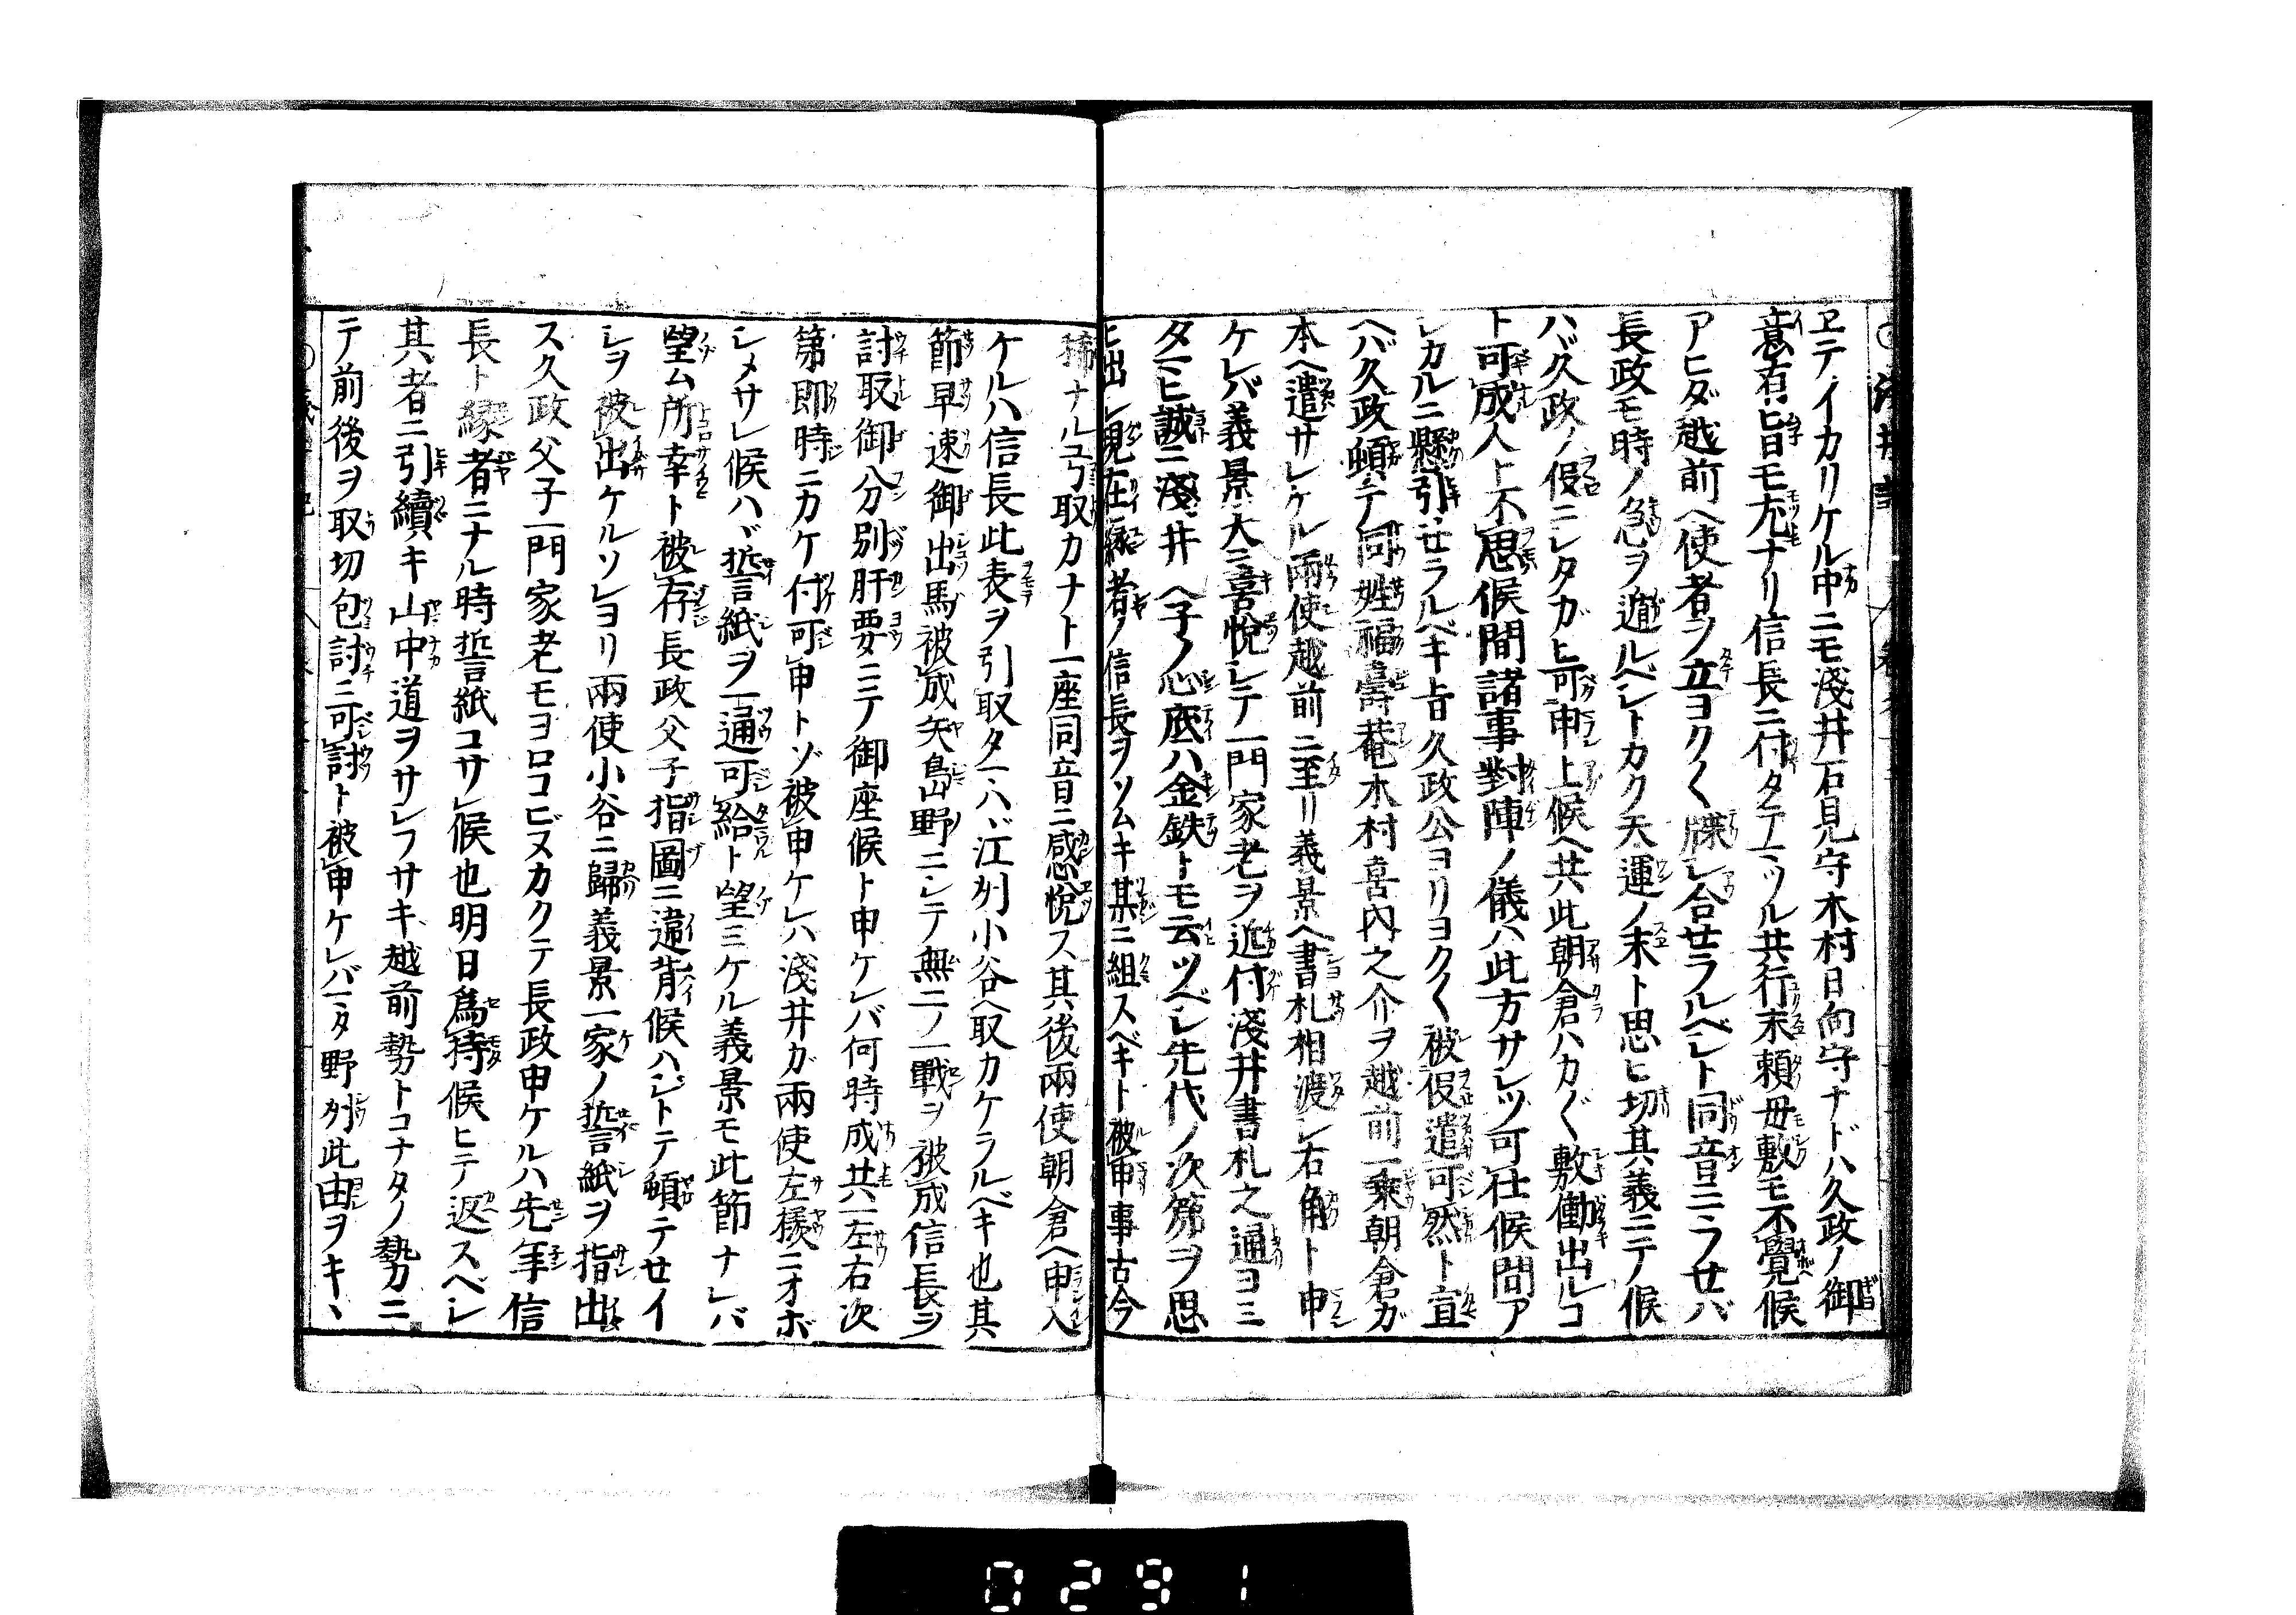 ヱテイカリケル中ニモ淺井石見守木村日向守ナドハ久政ノ御
意有旨モ尤ナリ信長ニ付タテマツル共行末頼毋敷モ不覺候
アヒダ越前ヘ使者ヲ立ヨク〱牒シ合セラルベシト同音ニ云ラセバ
長政モ時ノ急ヲ遁ルベシトカク天運ノ末ト思ヒ切其義ニテ候
ハバ久政ノ仮ニシタガヒ可申上候ヘ共此朝倉ハカ〲敷働出シコ
ト可成人ト不思候間諸事對陣ノ儀ハ此方サシヅ可仕候間ア
シカルニ懸引セラルベキ旨久政公ヨリヨク〱被仮遣可然ト宣
ヘバ久政頓テ同姓福壽菴木村喜内之介ヲ越前一乘朝倉ガ
本ヘ遣サレケル兩使越前ニ至リ義景ヘ書札相渡シ右角ト申
ケレバ義景大ニ喜悅シテ一門家老ヲ近付淺井書札之通ヨミ
タマヒ誠ニ淺井ヘ子ノ心底ハ金鉄トモ云ツベシ先代ノ次第ヲ思
ヒ出シ現在縁者ノ信長ヲソムキ某ニ組スベキト被申事古今
稀ナル弓取カナト一座同音ニ感悅ス其後兩使朝倉ヘ申入
ケルハ信長此表ヲ引取タマハヾ江州小谷ヘ取カケラルベキ也其
節早速御出馬被成矢島野ニシテ無二ノ一戰ヲ被成信長ヲ
討取御分別肝要ニテ御座候ト申ケレバ何時成共左右次
第即時ニカケ付可申トゾ被申ケレハ淺井ガ兩使左樣ニオボ
シメサレ候ハヾ誓紙ヲ一通可給ト望ミケル義景モ此節ナレバ
望ム所幸ト被存長政父子指圖ニ違背候ハジトテ頓テセイ
シヲ被出ケルソレヨリ兩使小谷ニ歸義景一家ノ誓紙ヲ指出
ス久政父子一門家老モヨロコビヌカクテ長政申ケルハ先年信
長ト縁者ニナル時誓紙コサレ候也明日爲持候ヒテ返スベシ
其者ニ引續キ山中道ヲサシフサキ越前勢トコナタノ勢力ニ
テ前後ヲ取切包討ニ可討ト被申ケレバマタ野州此由ヲキヽ
0291